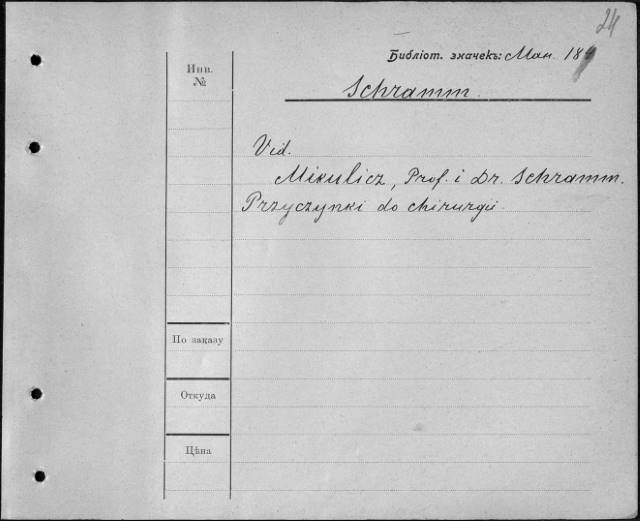 24
Библіот. значекъ: Man 18
Инв.
№
Schramm
Vid.
Mikulicz, Prof. i Dr. Schramm.
Przyczynki do chirurgii
По заказу
Откуда
Цѣна